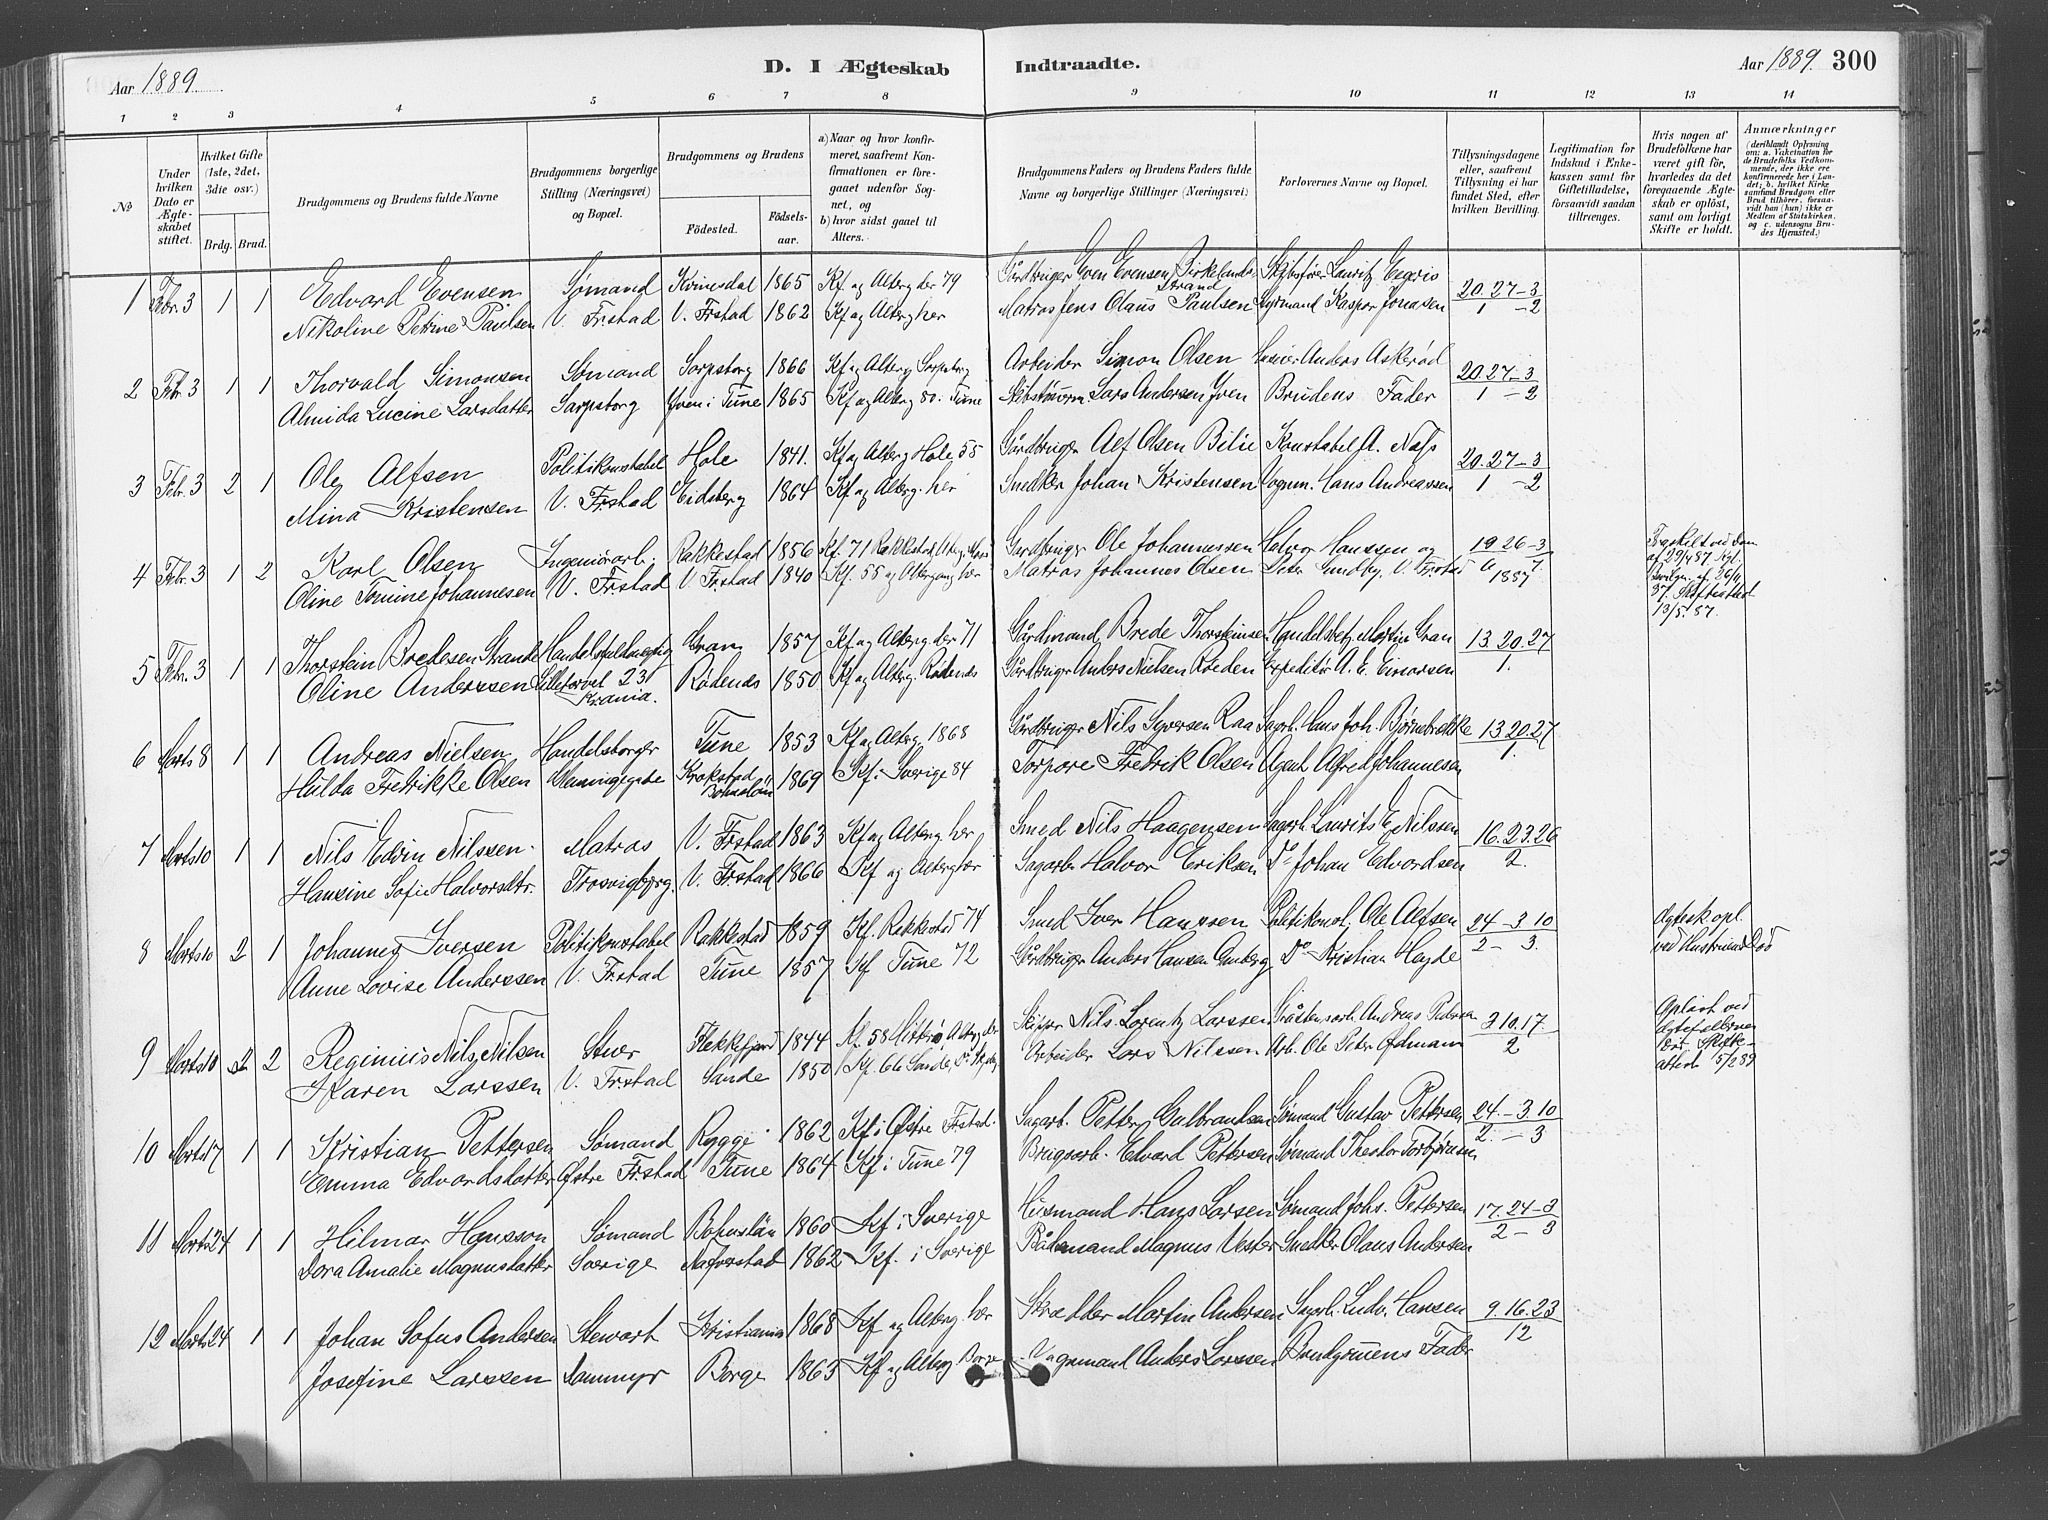 Aar 1889.
D. I Ægteskab Indtraadte.
Aar 1889. 300
1 2 3 4 5 6 7 8 9 10 11 12 13 14
№
Under hvilken Dato er Ægteskabet stiftet.
Hvilket Gifte (1ste, 2det, 3die osv.)
Brdg. Brud.
Brudgommens og Brudens fulde Navne
Brudgommens borgerlige Stilling (Næringsvei) og Bopæl.
Brudgommens og Brudens
Fødested. Fødselsaar.
a) Naar og hvor konfirmeret, saafremt Konfirmationen er foregaaet udenfor Sognet, og
b) hvor sidst gaaet til Alters.
Brudgommens Faders og Brudens Faders fulde Navne og borgerlige Stillinger (Næringsvei)
Forlovernes Navne og Bopæl.
Tillysningsdagene eller, saafremt Tillysning ei har fundet Sted, efter hvilken Bevilling.
Legitimation for Indskud i Enkekassen samt for Giftetilladelse, forsaavidt saadan tiltrænges.
Hvis nogen af Brudefolkene har været gift før, hvorledes da det foregaaende Ægteskab er opløst, samt om lovligt Skifte er holdt.
Anmærkninger (deriblandt Oplysning om: a. Vakcination for de Brudefolks Vedkommende, der ikke ere konfirmerede her i Landet; b. hvilket Kirkesamfund Brudgom eller Brud tilhører, forsaavidt han (hun) ikke er Medlem af Statskirken, og c. udensogns Brudes Hjemsted.)
1 Febr. 3 1 1 Edvard Evensen Sømand Kvinesdal 1865 Kf. og Alterg der 79 Gårdbruger Even Evensen Birkelandsstrand Skibsfører Lauritz Eegvis 20. 27 – 3
Nikoline Petrine Paulsen V. Frstad V. Frstad 1862 Kf og Alterg her Matros Jens Olaus Paulsen Styrmand Kaspar Jonasen 1 – 2
2 Febr 3 1 1 Thorvald Simonsen Sømand Sarpsborg 1866 Kf og Alterg Sarpsborg Arbeider Simon Olsen Anders Askerød 20. 27 – 3
Almida Lucine Larsdatter Sarpsborg Yven i Tune 1865 Kf og Alterg 80. Tune Skibstømm. Lars Andersen Yven Brudens Fader 1 – 2
3 Febr. 3 2 1 Ole Alfsen Politikonstabel Hole 1841. Kf og Alterg Hole 55 Gårdbruger Alf Olsen Bilie Konstabel A. Næss 20. 27 – 3
Mina Kristensen V. Frstad Eidsberg 1864 Kf og Alterg. her Snedker Johan Kristensen Vognm. Hans Andreassen 1 – 2
4 Febr. 3 1 2 Karl Olsen Ingeniørarb. Rakkestad 1856 Kf. 71 Rakkestad, Alterg. Gårdbruger Ole Johannessen Halvor Hanssen og 19 26 – 3
Oline Tomine Johannesen V. Frstad V. Frstad 1840 Kf. 55 og Altergang her Matros Johannes Olsen Peter Gundby, V. Frstad 1887
Fraskilt ved Dom af 29/4 87. Kgl. Bevilgn. af 26/11 87. Skifteattest 13/5. 87.
5 Febr. 3 1 1 Thorstein Bredesen Strande Handelsfuldmægtig Gran 1857 Kf og Alterg. der 71 Gårdmand Brede Thorsteinsen Handelsbetj. Martin Gran 13. 20. 27
Oline Anderssen Lilletorvet 23 Krania. Rødenæs 1850 Kf og Alterg. Rødenæs Gårdbruger Anders Nielsen Røeden Expeditør A. E. Einarsen 1.
6 Marts 8 1 1 Andreas Nielsen Handelsborger Tune 1853 Kf og Alterg. 1868 Gårdbruger Nils Syversen Raa Sagarb. Hans Joh. Bjørnebække 13 20. 27
Hulda Fredrikke Olsen Krokstad Bohuslän 1869 Kf. i Sverige 84 Torpare Fredrik Olsen Agent Alfred Johannesen 1.
7 Marts 10 1 1 Nils Edvin Nilssen. Matros V. Frstad 1863 Kf og Alterg. her Smed Nils Haagensen Sagarb. Laurits E. Nilssen 16. 23. 26
Hansine Sofie Halvorsdtr. Trosvigbjerg. V. Frstad 1866 Kf og Alterg her Sagarb Halvor Eriksen Do Johan Edvardsen 2.
8 Marts 10 2 1 Johannes Iversen Politikonstabel Rakkestad 1859 Kf. Rakkestad 74 Smed Iver Hanssen Politikonst. Ole Alfsen 24 – 3 10
Anne Lovise Anderssen V. Frstad Tune 1857 Kf Tune 72 Gårdbruger Anders Hansen Do Kristian Høyde 2 – 3.
Ægtesk. opl. ved Hustruens Død
9 Marts 10 2 2 Reginius Nils. Nilsen Stuer Flekkefjord 1844 Kf. 58 Hitterø, Alterg. der Skipper Nils Lorentz Larssen Gråstensarb. Andreas Peders 3 10. 17.
Karen Larssen V. Frstad Sande 1850 Kf. 66 Sande, Arbeider Lars Nilssen Arb. Ole Peter Ødmann 2
Opløst ved Ægtefællernes Død. Skifteattest 5/2 89
10 Marts 17 1 1 Kristian Pettersen Sømand Rygge 1862 Kf. i Østre Frstad. Sagarb. Petter Gulbrandsen Sømand Gustav Pettersen 24. – 3 10
Emma Edvardsdatter Østre Frstad Tune 1864 Kf. i Tune 79 Brugsarb. Edvard Pettersen Sømand Theodor Torbjørnsen 2. – 3
11 Marts 24 1 1 Hilmar Hansson Sømand Bohuslän 1860 Kf. i Sverige Husmand Hans Larsen Sømand Johs. Pettersen 17. 24 – 3
Dora Amalie Magnusdatter Sverige Naverstad 1862 Kf. i Sverige Magnus Vester Snedker Olaus Andersen 2 – 3
12 Marts 24 1 1 Johan Sofus Andersen Stewart Kristiania 1868 Kf og Alterg. her Skrædder Martin Andersen Sagarb. Ludv. Hansen 9. 16. 23
Josefine Larssen Dammyr Borge 1863 Kf og Alterg Borge Vognmand Anders Larssen Brudgommens Fader 12